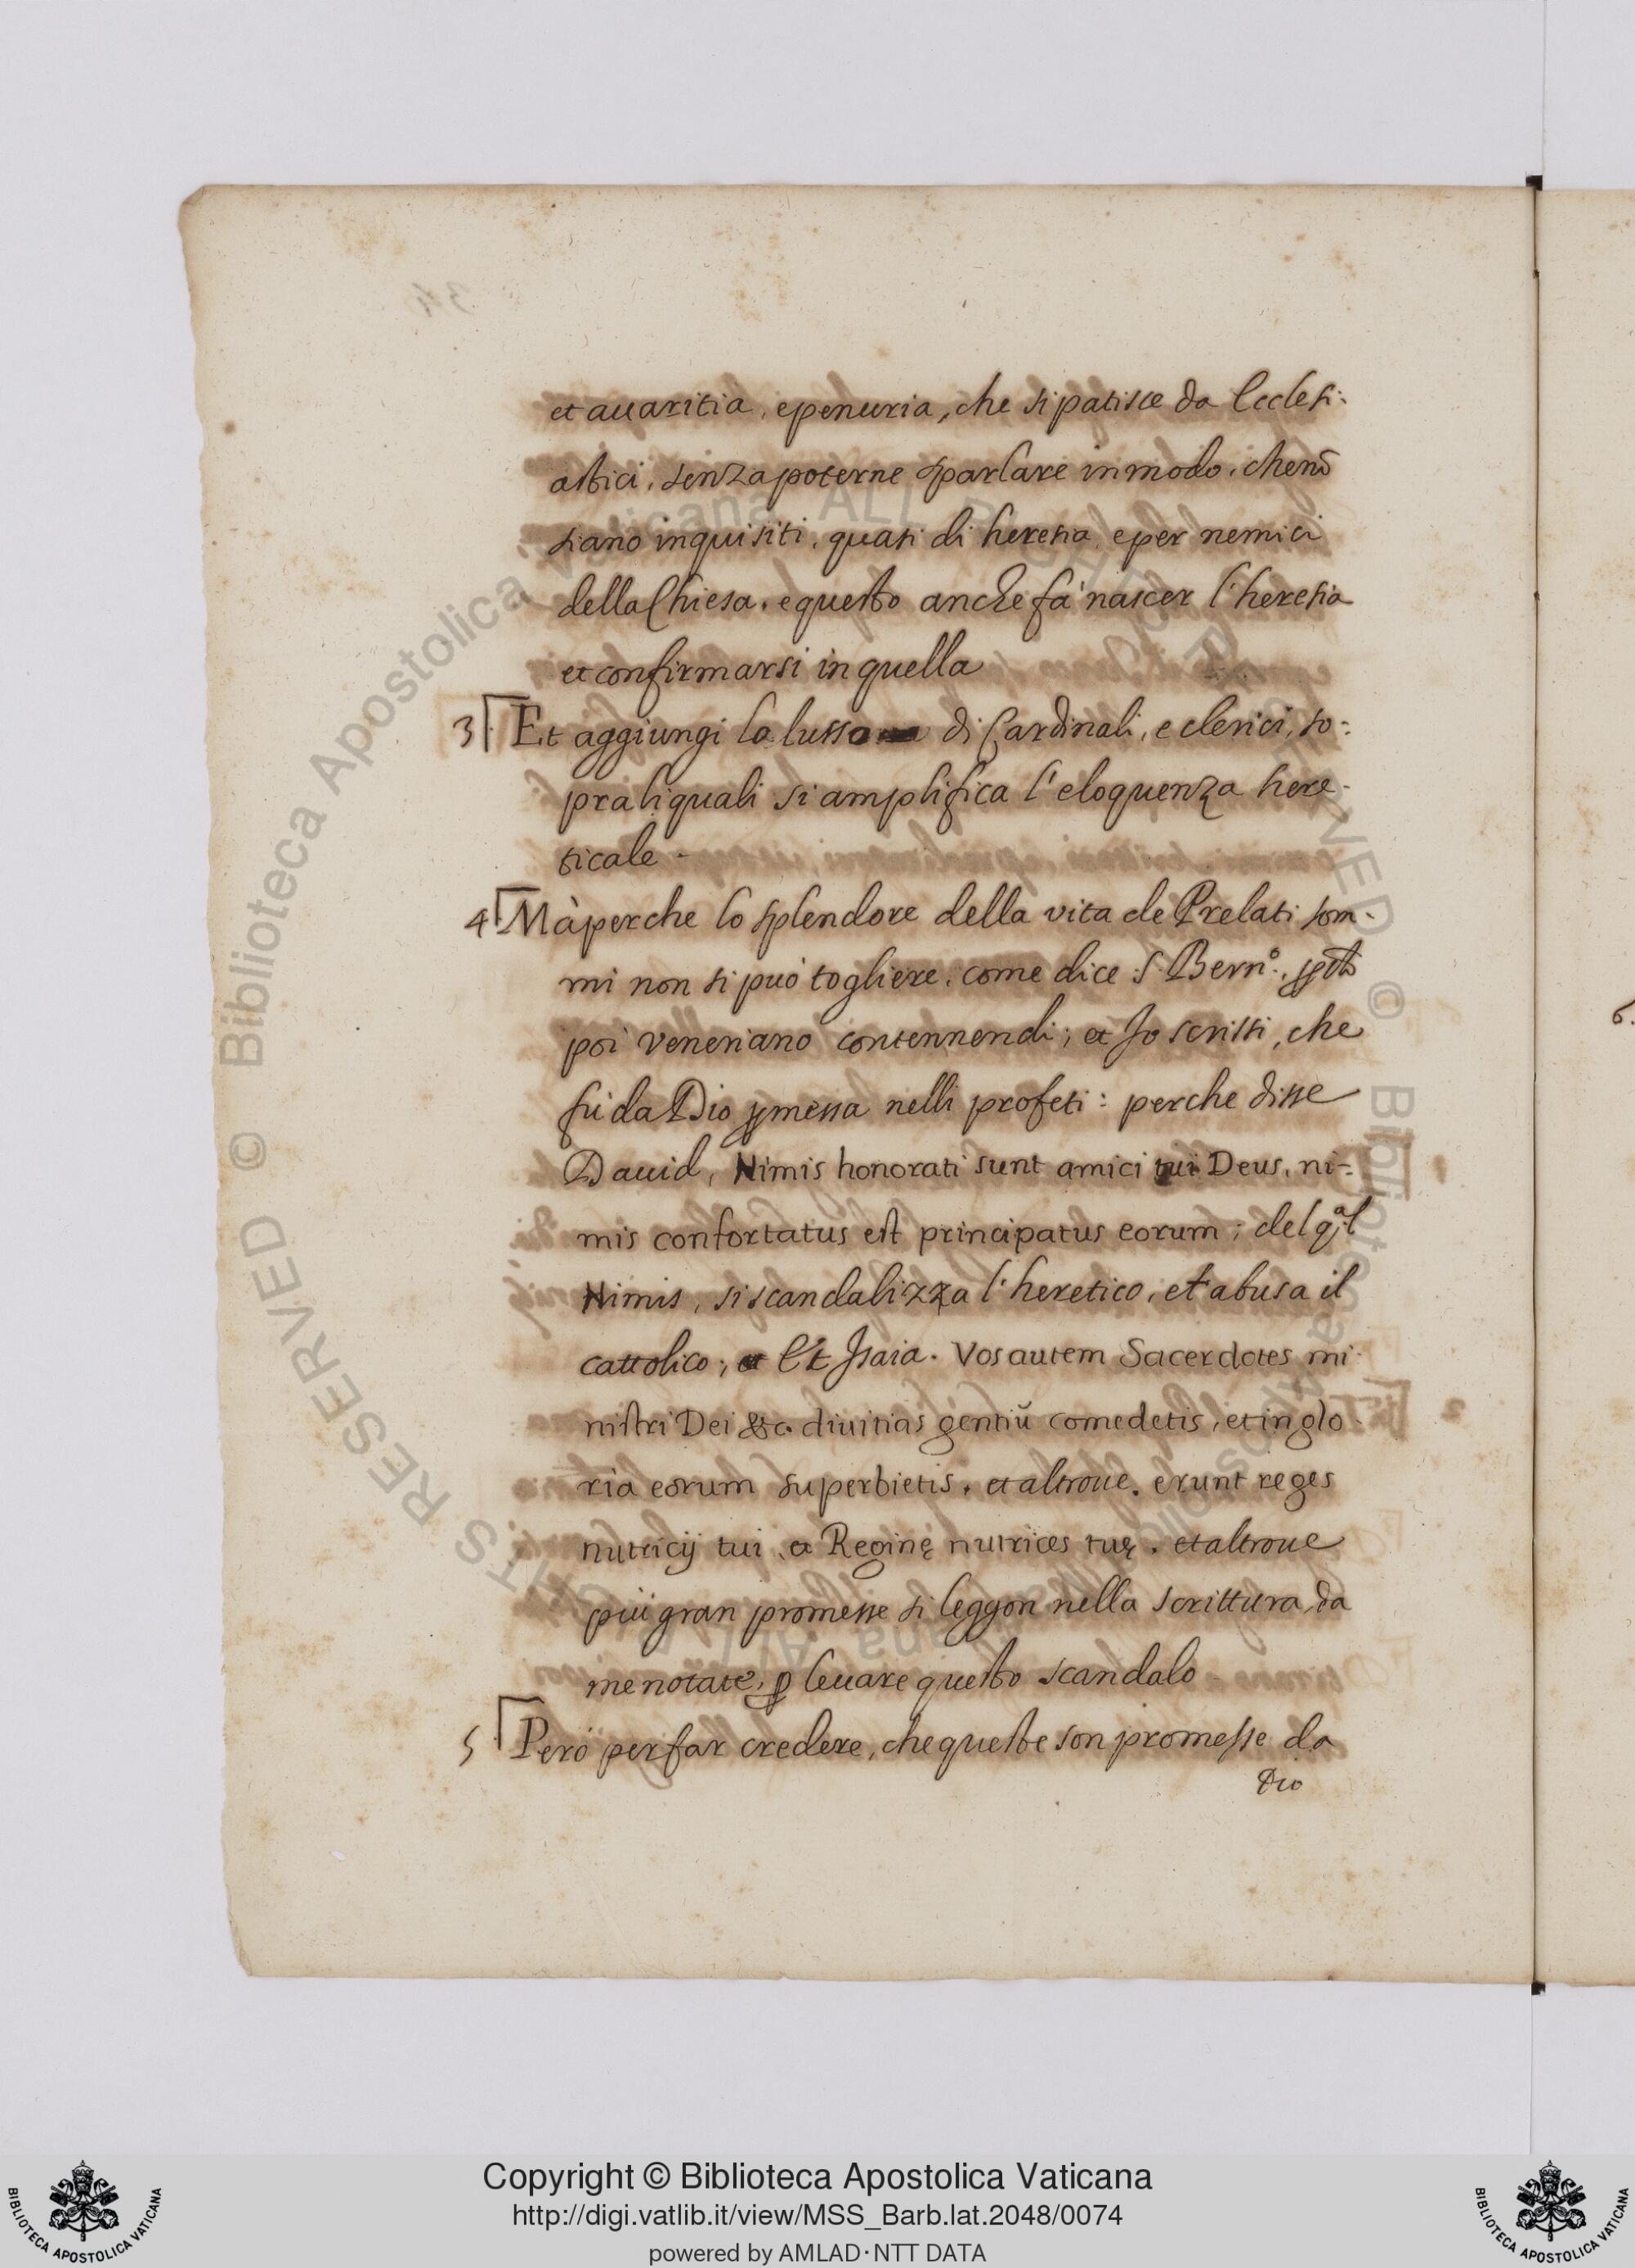 et auaritia, e penuria, che si patisce da Ecclesi:
astici, senza poterne sparlare in modo, che nō
siano inquisiti, quasi di heresia, e per nemici
della Chiesa. e questo anche fà nascer l'heresia
et confirmarsi in quella
3 Et aggiungi lo lusso di Cardinali, e clerici, so:
pra li quali si amplifica l'eloquenza here-
ticale.
4 Mà perche lo splendore della vita de Prelati som-
mi non si può togliere, come dice S. Bern.º,
poi veneriano contennendi; et Io scrissi, che
fù da Dio ꝑmessa nelli profeti: perche disse
Dauid, Nimis honorati sunt amici tui Deus, ni-:
mis confortatus est principatus eorum; del q.al
Nimis, si scandalizza l'heretico, et abusa il
cattolico; Et Isaia. Vos autem Sacerdotes mi-
nistri Dei &c. diuitias gentiū comedetis, et in glo-
ria eorum superbietis. et altroue. erunt reges
nutricij tui, et Reginę nutrices tuę. et altroue
più gran promesse si leggon nella scrittura, da
me notate, ꝑ leuare questo scandalo
5 Però per far credere, che queste son promesse da
Dio
BIBLIOTECA APOSTOLICA VATICANA
Copyright © Biblioteca Apostolica Vaticana
http://digi.vatlib.it/view/MSS_Barb.lat.2048/0074
powered by AMLAD·NTT DATA
BIBLIOTECA APOSTOLICA VATICANA